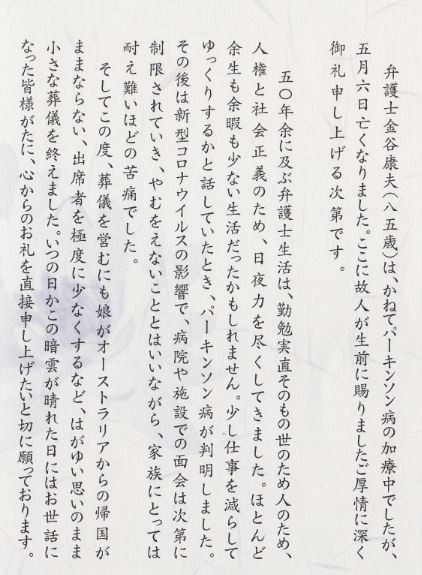 弁護士金谷康夫(八五歳)は、かねてパーキンソン病の加療中でしたが、
五月六日亡くなりました。ここに故人が生前に賜りましたご厚情に深く
御礼申し上げる次第です。
五〇年余に及ぶ弁護士生活は、勤勉実直そのもの世のため人のため、
人権と社会正義のため、日夜力を尽くしてきました。ほとんど
余生も余暇も少ない生活だったかもしれません。少し仕事を減らして
ゆっくりするかと話していたとき、パーキンソン病が判明しました。
その後は新型コロナウイルスの影響で、病院や施設での面会は次第に
制限されていき、やむをえないこととはいいながら、家族にとっては
耐え難いほどの苦痛でした。
そしてこの度、葬儀を営むにも娘がオーストラリアからの帰国が
ままならない、出席者を極度に少なくするなど、はがゆい思いのまま
小さな葬儀を終えました。いつの日かこの暗雲が晴れた日にはお世話に
なった皆様がたに、心からのお礼を直接申し上げたいと切に願っております。